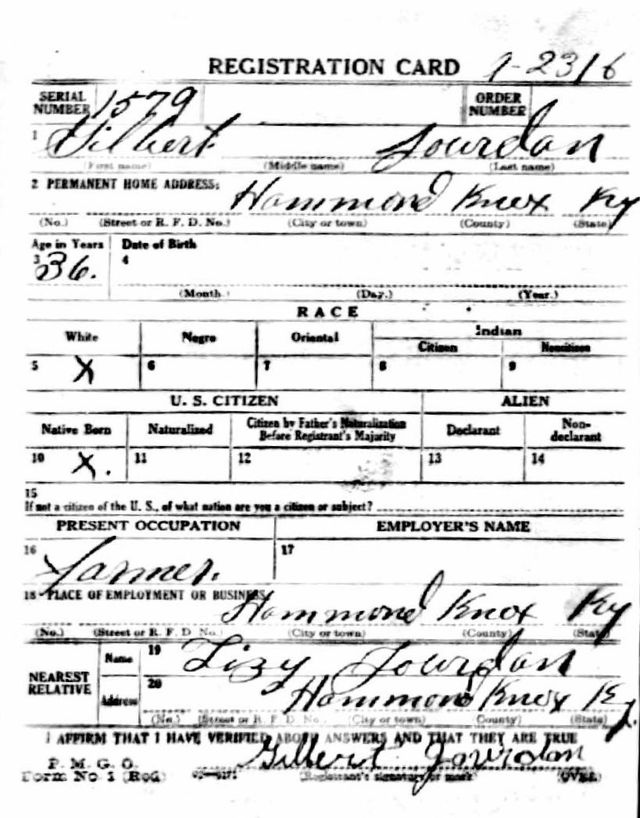 REGISTRATION CARD 9-2316
SERIAL NUMBER 1579 ORDER NUMBER
1 Gilbert Jourdan
(First name) (Middle name) (Last name)
2 PERMANENT HOME ADDRESS: Hammond Knox Ky
(No.) (Street or R. F. D. No.) (City or town) (County) (State)
Age in Years Date of Birth
3 36. 4
(Month.) (Day.) (Year.)
RACE
White Negro Oriental Indian
Citizen Noncitizen
5 X 6 7 8 9
U. S. CITIZEN ALIEN
Native Born Naturalized Citizen by Father's Naturalization Before Registrant's Majority Declarant Non-declarant
10 X. 11 12 13 14
15
If not a citizen of the U. S., of what nation are you a citizen or subject?
PRESENT OCCUPATION EMPLOYER'S NAME
16 Farmer. 17
18 PLACE OF EMPLOYMENT OR BUSINESS:
Hammond Knox Ky
(No.) (Street or R. F. D. No.) (City or town) (County) (State)
NEAREST RELATIVE Name 19 Lizy Jourdan
Address 20 Hammond Knox Ky.
(No.) (Street or R. F. D. No.) (City or town) (County) (State)
I AFFIRM THAT I HAVE VERIFIED ABOVE ANSWERS AND THAT THEY ARE TRUE
P. M. G. O.
Form No. 1 (Red) Gilbert Jourdan
(Registrant's signature or mark) (OVER)